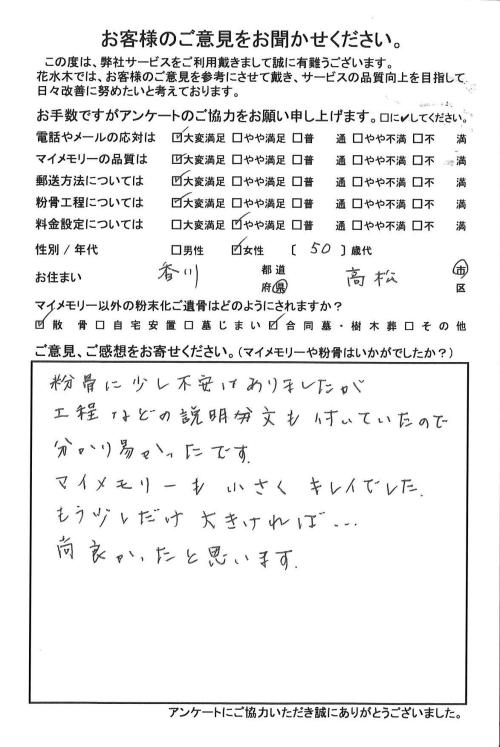 お客様のご意見をお聞かせください。
この度は、弊社サービスをご利用戴きまして誠に有難うございます。
花水木では、お客様のご意見を参考にさせて戴き、サービスの品質向上を目指して
日々改善に努めたいと考えております。
お手数ですがアンケートのご協力をお願い申し上げます。□に✔してください。
電話やメールの応対は ☑大変満足 □やや満足 □普 通 □やや不満 □不 満
マイメモリーの品質は ☑大変満足 □やや満足 □普 通 □やや不満 □不 満
郵送方法については ☑大変満足 □やや満足 □普 通 □やや不満 □不 満
粉骨工程については ☑大変満足 □やや満足 □普 通 □やや不満 □不 満
料金設定については □大変満足 ☑やや満足 □普 通 □やや不満 □不 満
性別 / 年代 □男性 ☑女性 〔 50 〕歳代
お住まい 香川 都道府県 高松 市区
マイメモリー以外の粉末化ご遺骨はどのようにされますか?
☑散 骨 □自宅安置 □墓じまい ☑合同墓・樹木葬 □その他
ご意見、ご感想をお寄せください。(マイメモリーや粉骨はいかがでしたか?)
粉骨に少し不安はありましたが
工程などの説明分文も付いていたので
分かり易かったです.
マイメモリーも小さくキレイでした.
もう少しだけ大きければ…
尚良かったと思います.
アンケートにご協力いただき誠にありがとうございました。